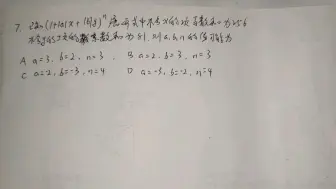 7. 已知(1+|a|x+|b|y)ⁿ 展开式中不含x的项系数和为256
不含y的项的系数和为81, 则a,b,n的值可能为
A a=3, b=2, n=3, B a=2, b=3, n=3
C a=2, b=-3, n=4 D a=-3, b=-2, n=4